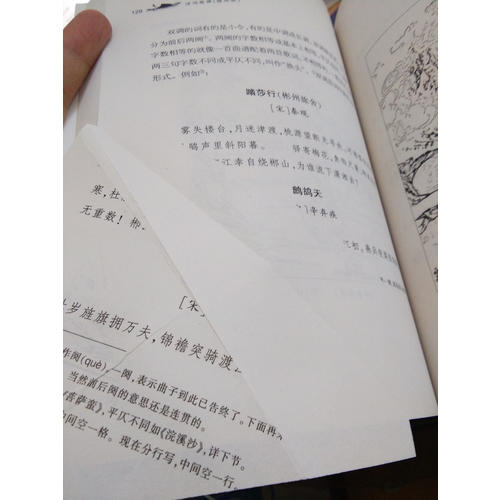 128
双调的词有的是小令,有的是中调或长调。
分为前后两阕。两阕的字数相等或基本上相等,
字数相等的就像一首曲谱配着两首歌词。不相等的,一
两三句字数不同或平仄不同,叫作“换头”,
形式。例如:
踏莎行(郴州旅舍)
[宋]秦观
雾失楼台,月迷津渡,桃源望断无寻处。
鹃声里斜阳暮。 驿寄梅花,鱼
江幸自绕郴山,为谁流下潇湘去?
鹧鸪天
辛弃疾
寒,杜
无重数!郴
[宋
岁旌旗拥万夫,锦襜突骑渡
初。燕兵夜
作阕(què),一阕,表示曲子到此已告终了。下面再
当然前后阕的意思还是连贯的。
《菩萨蛮》,平仄不同如《浣溪沙》,详下节。
中间空一格。现在分行写,中间空一行。